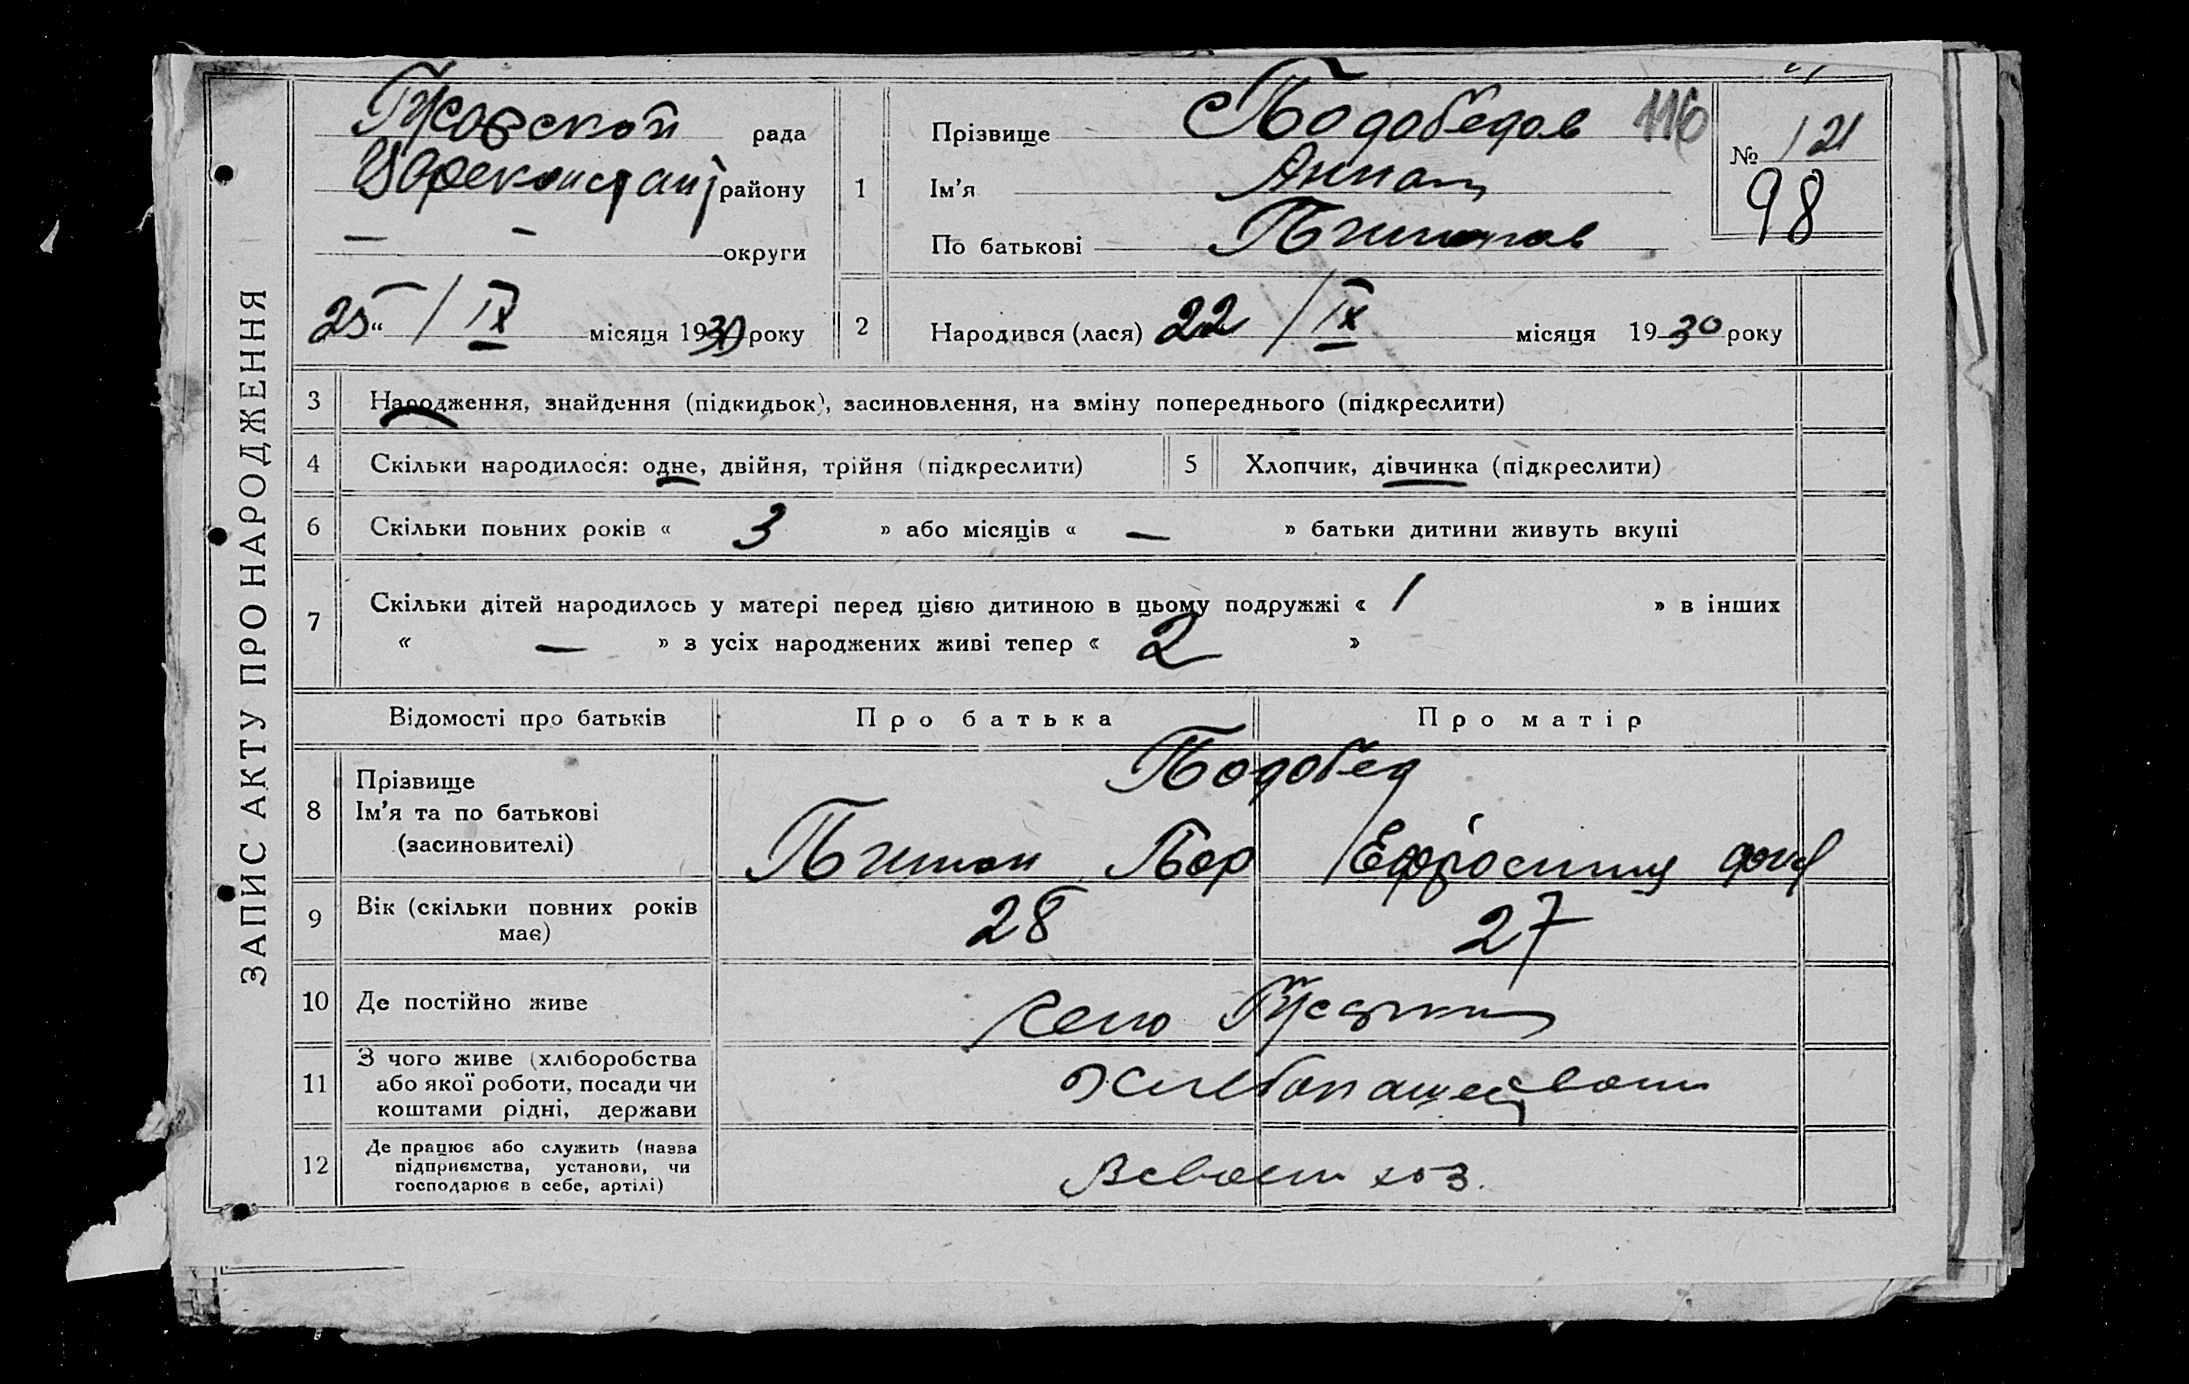 ЗАПИС АКТУ ПРО НАРОДЖЕННЯ
рада
району
— — округи
25 “ / IX місяця 1930 року
1
Прізвище Подобедов 116
Ім’я Анна
По батькові
№ 121
98
2
Народився (лася) 22 / IX місяця 1930 року
3 Народження, знайдення (підкидьок), засиновлення, на зміну попереднього (підкреслити)
4 Скільки народилося: одне, двійня, трійня (підкреслити) 5 Хлопчик, дівчинка (підкреслити)
6 Скільки повних років « 3 » або місяців « — » батьки дитини живуть вкупі
7 Скільки дітей народилось у матері перед цією дитиною в цьому подружжі « 1 » в інших
« — » з усіх народжених живі тепер « 2 »
Відомості про батьків Про батька Про матір
8 Прізвище
Ім’я та по батькові
(засиновителі)
Подобед
9 Вік (скільки повних років
має)
28 27
10 Де постійно живе село
11 З чого живе (хліборобства
або якої роботи, посади чи
коштами рідні, держави
12 Де працює або служить (назва
підприємства, установи, чи
господарює в себе, артілі)
хоз.